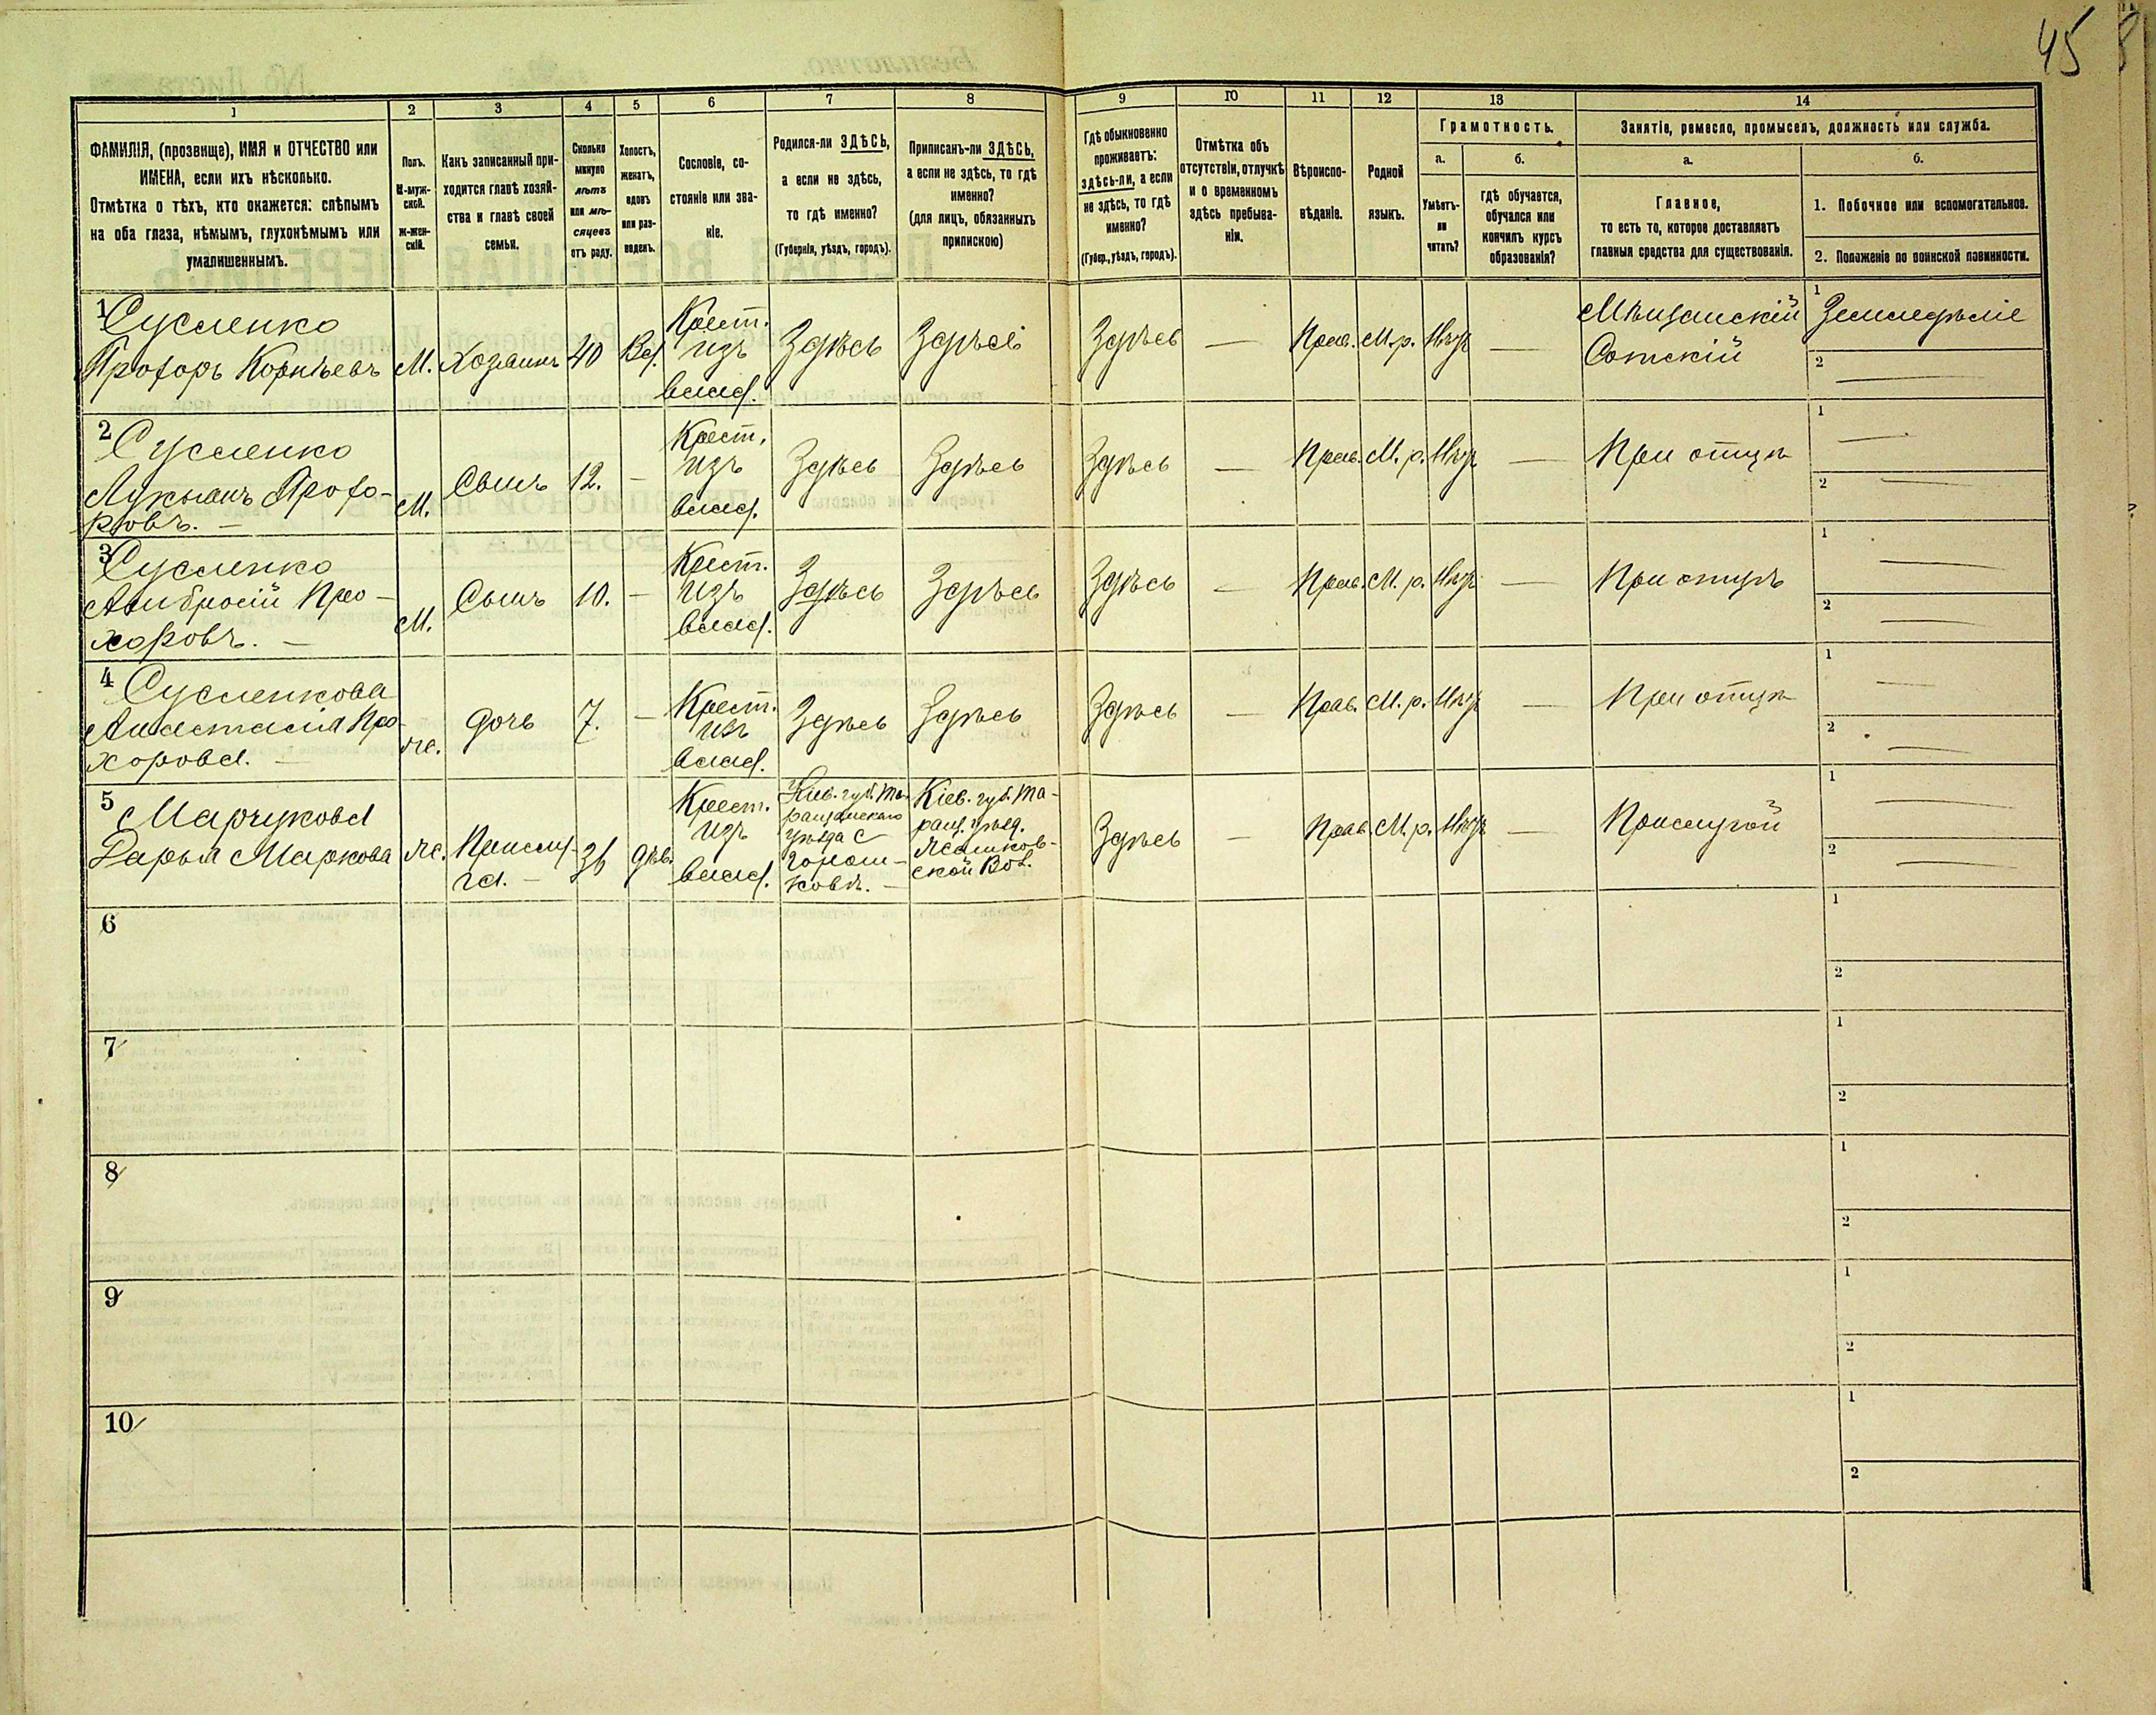 45
1 2 3 4 5 6 7 8 9 10 11 12 13 14
ФАМИЛІЯ, (прозвище), ИМЯ и ОТЧЕСТВО или
ИМЕНА, если ихъ нѣсколько.
Отмѣтка о тѣхъ, кто окажется: слѣпымъ
на оба глаза, нѣмымъ, глухонѣмымъ или
умалишеннымъ.
Полъ.
М-муж-
ской.
Ж-жен-
скій.
Какъ записанный при-
ходится главѣ хозяй-
ства и главѣ своей
семьи.
Сколько
минуло
лѣтъ
или мѣ-
сяцевъ
отъ роду.
Холостъ,
женатъ,
вдовъ
или раз-
веденъ.
Сословіе, со-
стояніе или зва-
ніе.
Родился-ли ЗДѢСЬ,
а если не здѣсь,
то гдѣ именно?
(Губернія, уѣздъ, городъ).
Приписанъ-ли ЗДѢСЬ,
а если не здѣсь, то гдѣ
именно?
(для лицъ, обязанныхъ
припискою)
Гдѣ обыкновенно
проживаетъ:
здѣсь-ли, а если
не здѣсь, то гдѣ
именно?
(Губер., уѣздъ, городъ).
Отмѣтка объ
отсутствіи, отлучкѣ
и о временномъ
здѣсь пребыва-
ніи.
Вѣроиспо-
вѣданіе.
Родной
языкъ.
Грамотность.
а.
Умѣетъ-
ли
читать?
б.
гдѣ обучается,
обучался или
кончилъ курсъ
образованія?
Занятіе, ремесло, промыселъ, должность или служба.
а.
Главное,
то есть то, которое доставляетъ
главныя средства для существованія.
б.
1. Побочное или вспомогательное.
2. Положеніе по воинской повинности.
1 Сусленко
Прохоръ Корнѣевъ
М. Хозяинъ 40 Вд.
Крест.
изъ
влад.
Здѣсь Здѣсь Здѣсь — Прав. М.р. Нѣтъ —
Мѣщанскій
Сотскій
1 Земледѣліе
2 —
2 Сусленко
Лукьянъ Прохо-
ровъ. —
М. Сынъ 12. —
Крест.
изъ
влад.
Здѣсь Здѣсь Здѣсь — Прав. М.р. Нѣтъ — При отцѣ
1 —
2 —
3 Сусленко
Амбросій Про-
хоровъ. —
М. Сынъ 10. —
Крест.
изъ
влад.
Здѣсь Здѣсь Здѣсь — Прав. М.р. Нѣтъ — При отцѣ
1 —
2 —
4 Сусленкова
Анастасія Про-
хорова. —
Ж. дочь 7. —
Крест.
изъ
влад.
Здѣсь Здѣсь Здѣсь — Прав. М.р. Нѣтъ — При отцѣ
1 —
2 —
5 Марчукова
Дарья Маркова
Ж. Прислу-
га. —
36 дѣв.
Крест.
изъ
влад.
Кіев. губ. Та-
ращанскаго
уѣзда с
Кіев. губ. Та-
ращ. уѣзд.
ской Вол.
Здѣсь — Прав. М.р. Нѣтъ — Прислугой
1 —
2 —
6
1
2
7
1
2
8
1
2
9
1
2
10
1
2